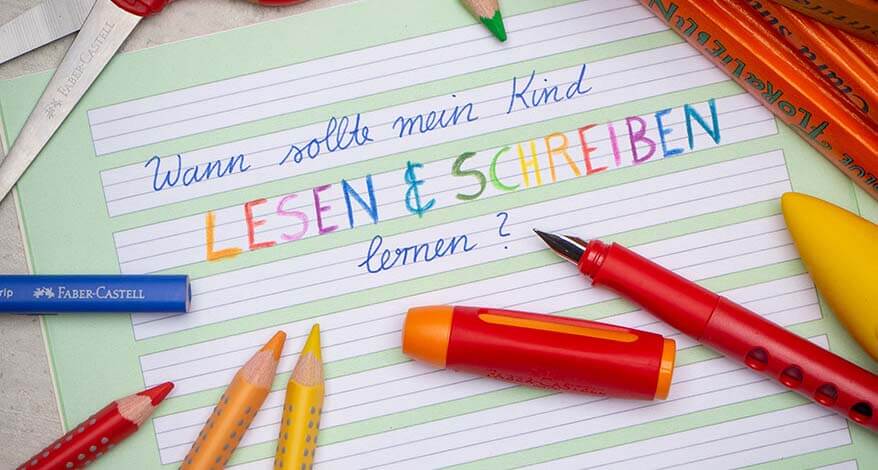 FABER-CASTELL
Wann sollte mein Kind
LESEN & SCHREIBEN
lernen ?
rip FABER-CASTELL
FABER-CASTELL